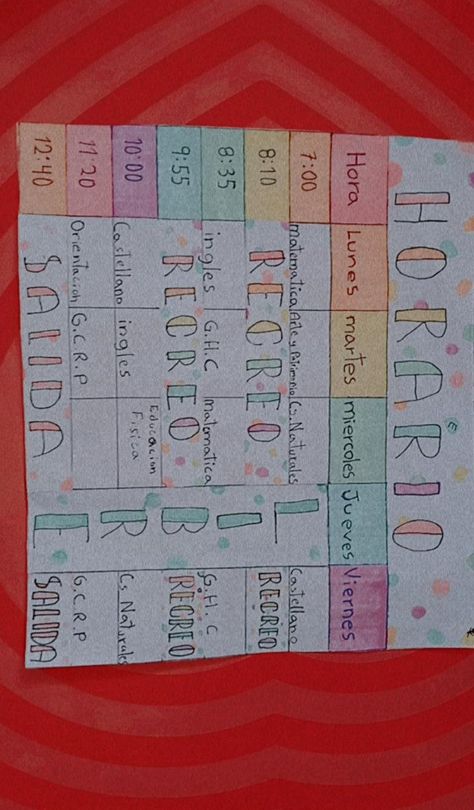 HORARIO
Hora Lunes martes miercoles Jueves Viernes
7:00 matematica Arte y Patrimonio Cs. Naturales Castellano
8:10 RECREO RECREO
8:35 ingles G.H.C matematica G.H.C
9:55 RECREO RECREO
10:00 Castellano ingles Educacion Fisica Cs. Naturales
11:20 Orientacion G.C.R.P G.C.R.P
12:40 SALIDA SALIDA
LIBRE